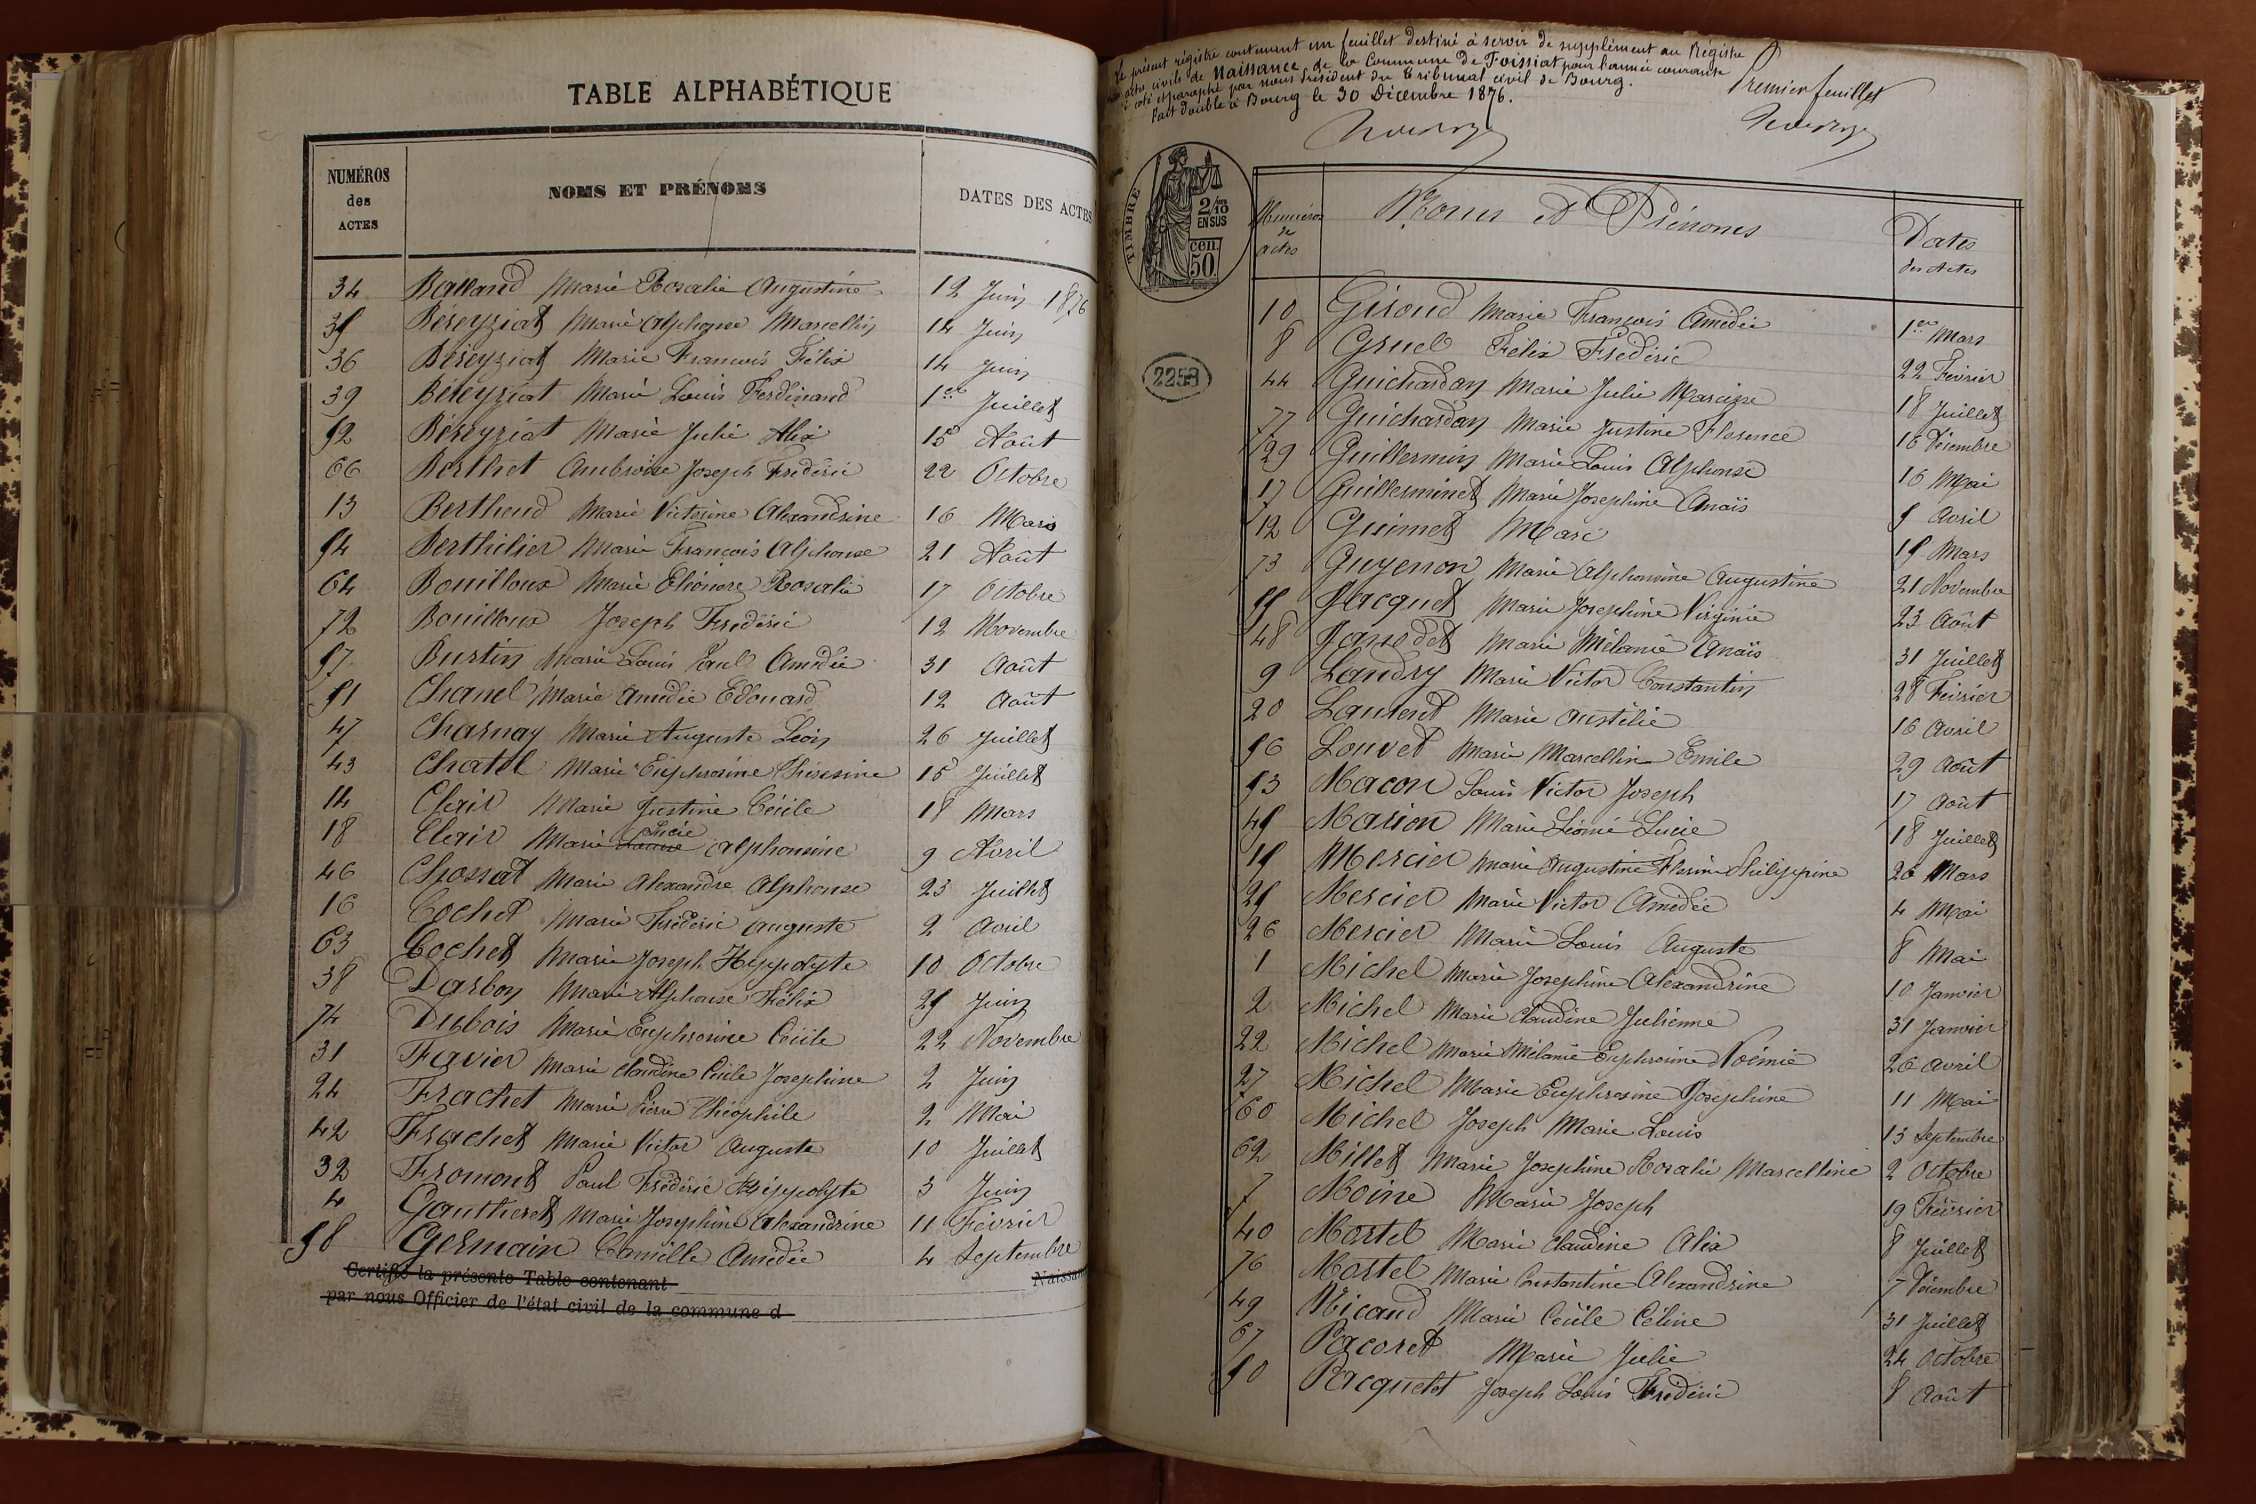 TABLE ALPHABÉTIQUE
NUMÉROS des ACTES NOMS ET PRÉNOMS DATES DES ACTES
34 Balland Marie Rosalie Augustine 12 Juin 1876
35 Béreyziat Marie Alphonse Marcellin 14 Juin
36 Béreyziat Marie François Félix 14 Juin
39 Béreyziat Marie Louis Ferdinand 1er Juillet
52 Béreyziat Marie Julie Alix 15 Août
66 Berthet Ambroise Joseph Frédéric 22 Octobre
13 Berthoud Marie Victorine Alexandrine 16 Mars
54 Berthilier Marie François Alphonse 21 Août
64 Bouilloux Marie Eléonore Rosalie 17 Octobre
72 Bouilloux Joseph Frédéric 12 Novembre
57 Burtin Marie Louis Paul Amédée 31 Août
51 Chanel Marie Amédée Edouard 12 Août
47 Charnay Marie Auguste Léon 26 Juillet
43 Chatel Marie Euphrosine Thérésine 15 Juillet
14 Clair Marie Justine Cécile 18 Mars
18 Clair Marie Lucie Alphonsine 9 Avril
46 Chossat Marie Alexandre Alphonse 23 Juillet
16 Cochet Marie Frédéric Auguste 2 Avril
63 Cochet Marie Joseph Hippolyte 10 Octobre
38 Darbon Marie Alphonse Félix 25 Juin
74 Dubois Marie Euphrosine Cécile 22 Novembre
31 Favier Marie Claudine Cécile Josephine 2 Juin
24 Frachet Marie Pierre Théophile 2 Mai
42 Frachet Marie Victor Auguste 10 Juillet
32 Fromont Paul Frédéric Hippolyte 3 Juin
4 Gautheret Marie Joséphine Alexandrine 11 Février
58 Germain Camille Amédée 4 Septembre
Certifié la présente Table contenant Naissan
par nous Officier de l'état civil de la commune d
Le présent régistre contenant un feuillet destiné à servir de supplément au Régistre
des actes civils de Naissance, de la Commune de Foissiat pour l'année courante
a été coté et paraphé par nous Président du Tribunal civil de Bourg.
Fait double à Bourg le 30 Décembre 1876.
Premier feuillet
TIMBRE
2/10 EN SUS
50 cen.
2258
Numéros de actes Noms et Prénoms Dates des Actes
10 Giroud Marie François Amédée 1er Mars
8 Gruel Félix Frédéric 22 Février
44 Guichardon Marie Julie Narcisse 18 Juillet
77 Guichardon Marie Justine Florence 16 Décembre
29 Guillermin Marie Louis Alphonse 16 Mai
17 Guilleminet Marie Josephine Anaïs 5 Avril
12 Guimet Marc 15 Mars
73 Guyenon Marie Alphonsine Augustine 21 Novembre
55 Jacquet Marie Joséphine Virginie 23 Août
48 Janodet Marie Mélanie Anaïs 31 Juillet
9 Landry Marie Victor Constantin 28 Février
20 Laurent Marie Austélie 16 Avril
56 Louvet Marie Marcellin Emile 29 Août
53 Macon Louis Victor Joseph 17 Août
45 Marion Marie Léonie Lucie 18 Juillet
15 Mercier Marie Augustine Florine Philippine 26 Mars
25 Mercier Marie Victor Amédée 4 Mai
26 Mercier Marie Louis Auguste 8 Mai
1 Michel Marie Josephine Alexandrine 10 Janvier
2 Michel Marie Claudine Julienne 31 Janvier
22 Michel Marie Mélanie Euphrosine Noémie 26 Avril
27 Michel Marie Euphrosine Josephine 11 Mai
60 Michel Joseph Marie Louis 13 Septembre
62 Millet Marie Josephine Rosalie Marcelline 2 Octobre
7 Moine Marie Joseph 19 Février
40 Mortel Marie Claudine Alix 8 Juillet
76 Mortel Marie Constantine Alexandrine 7 Décembre
49 Nicaud Marie Cécile Céline 31 Juillet
67 Pacoret Marie Julie 24 Octobre
50 Pacquelet Joseph Louis Frédéric 8 Août